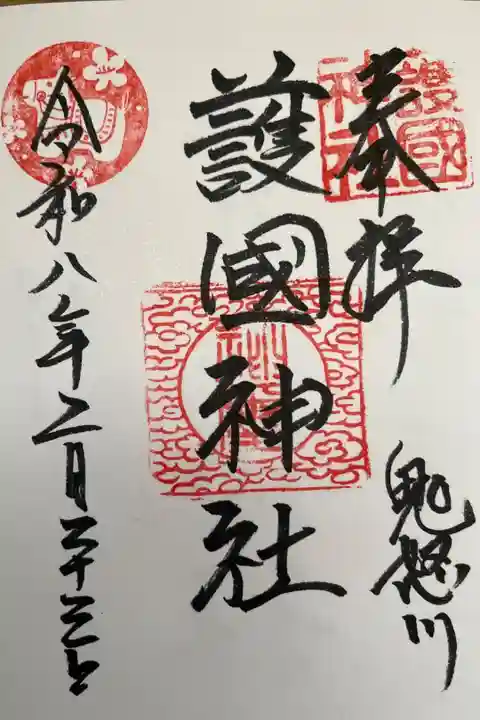 奉拝
鬼怒川
護國神社
護國神社
令和八年二月二十三日